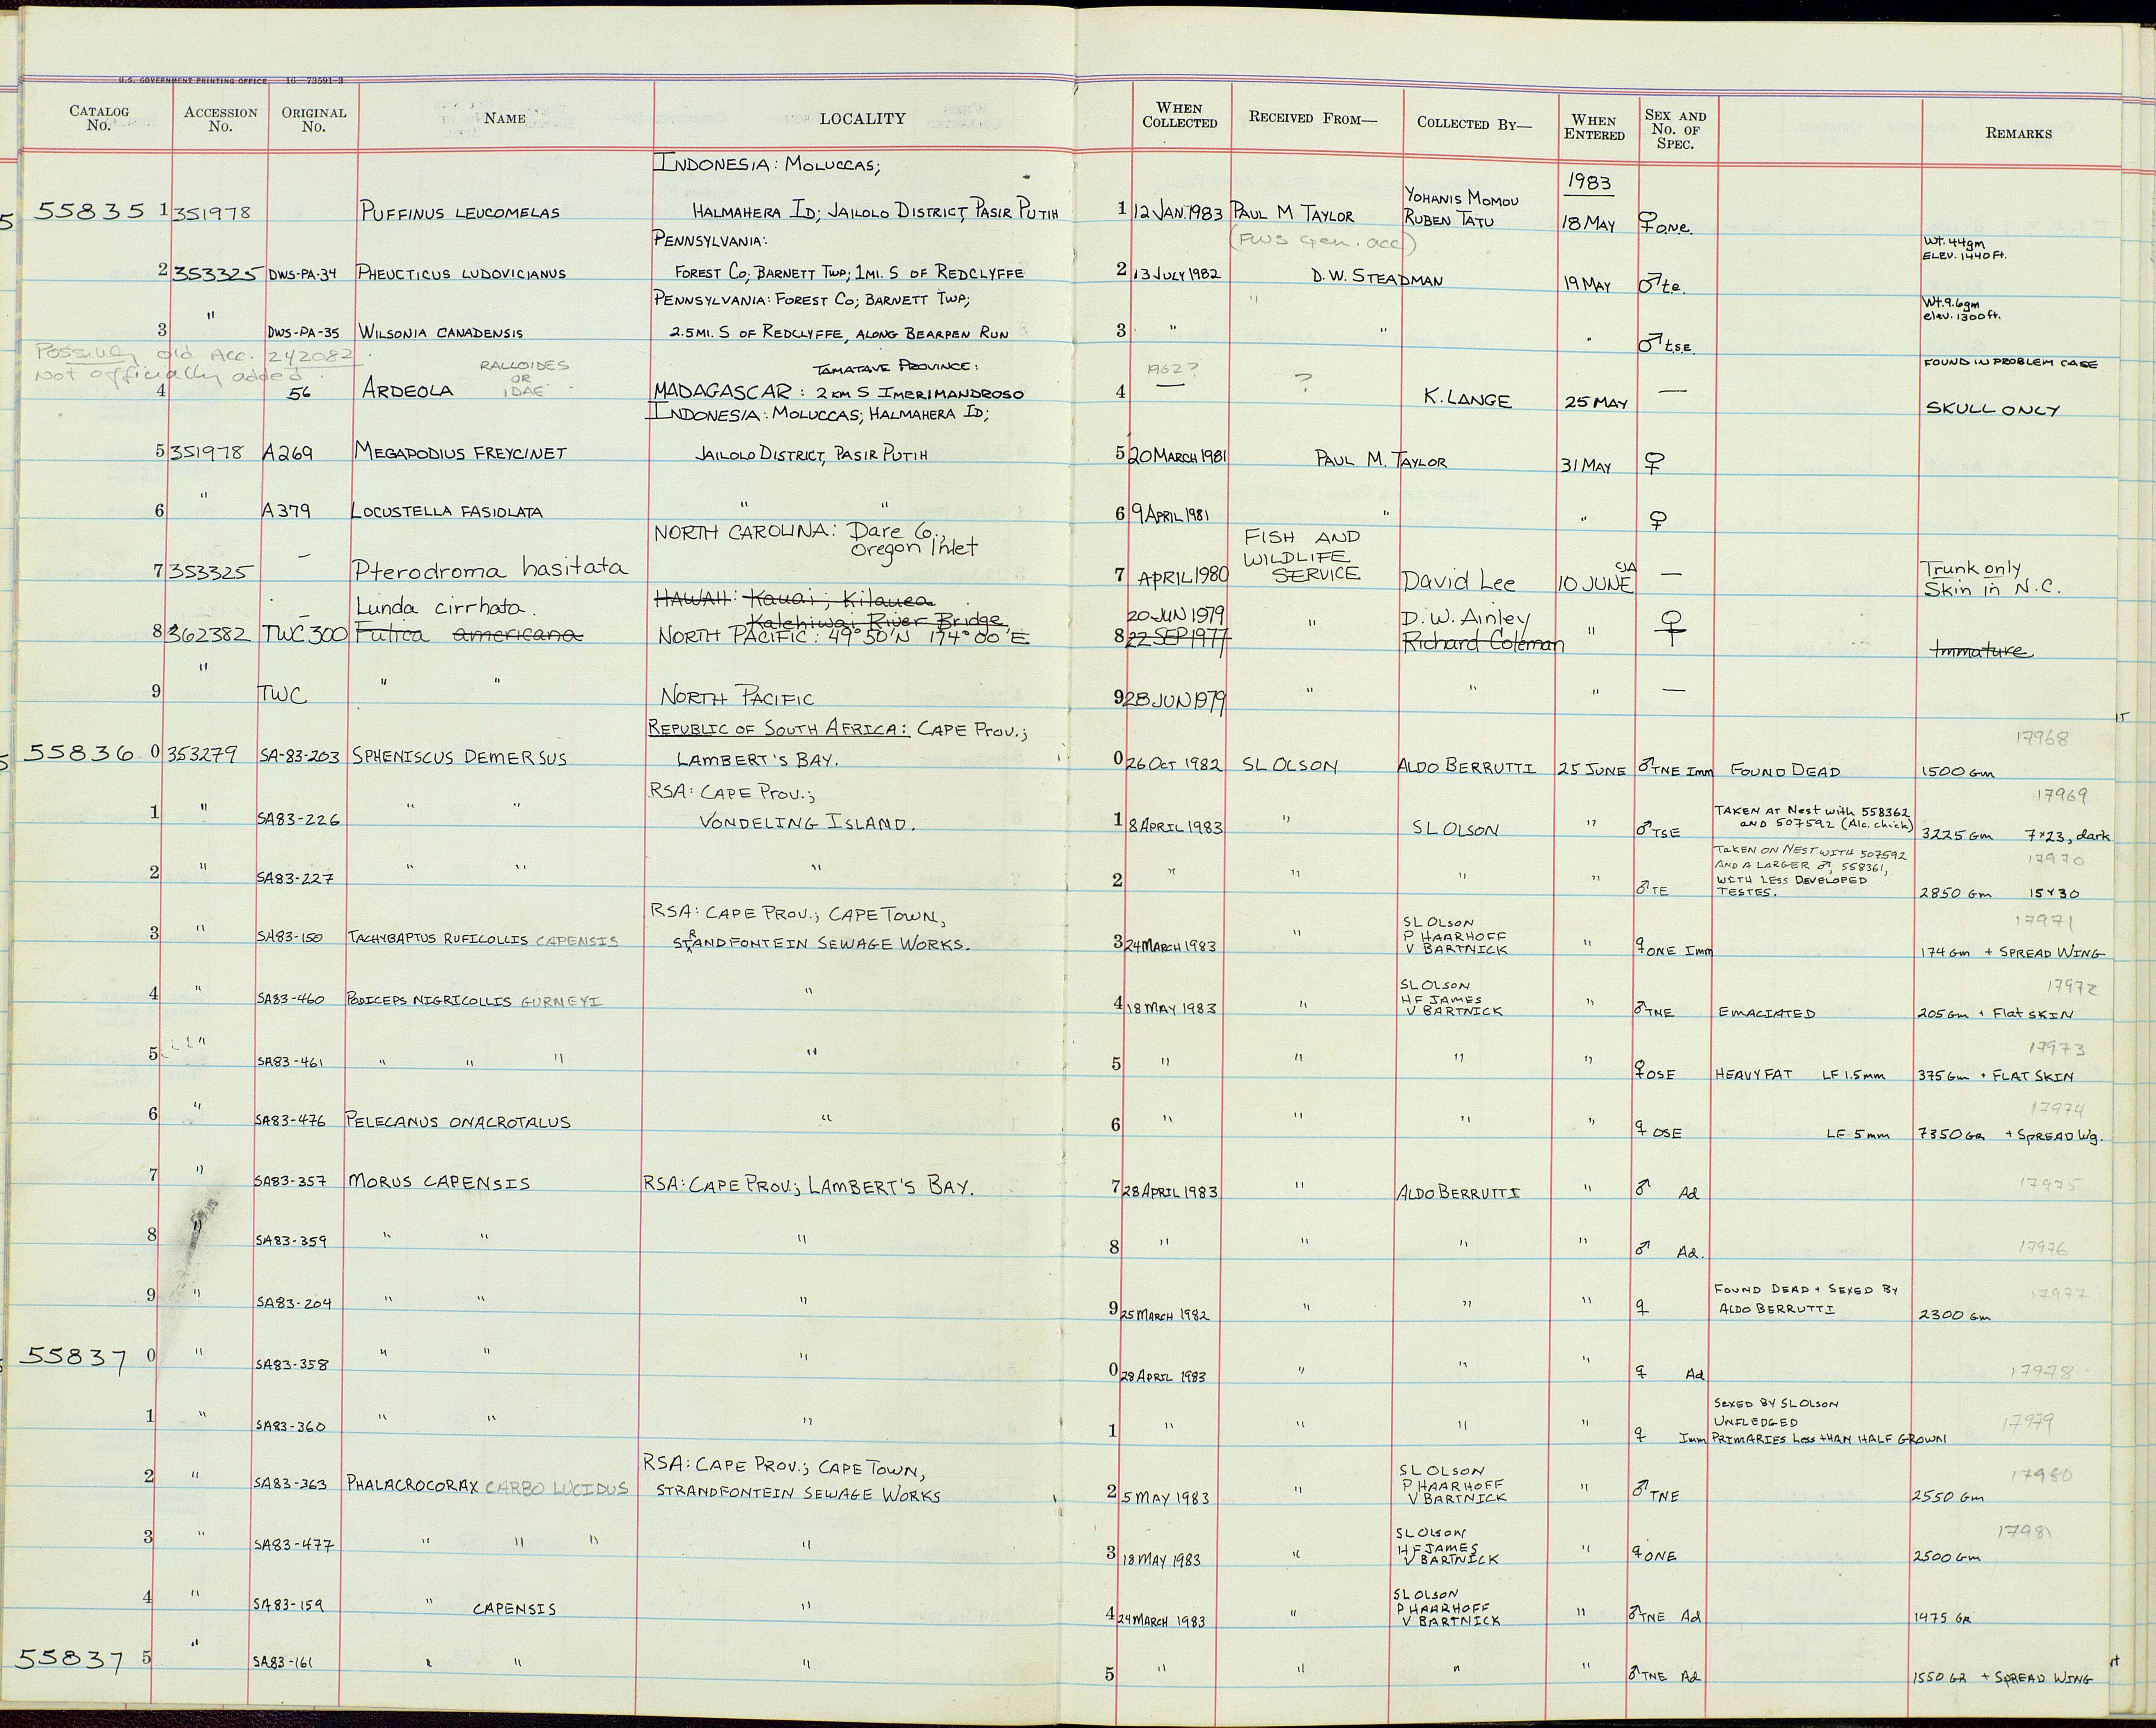 U.S. GOVERNMENT PRINTING OFFICE 16—73591-3
CATALOG No. ACCESSION No. ORIGINAL No. NAME LOCALITY WHEN COLLECTED RECEIVED FROM— COLLECTED BY— WHEN ENTERED SEX AND No. OF SPEC. REMARKS
INDONESIA: MOLUCCAS;
1983
YOHANIS MOMOU
55835 1 351978 PUFFINUS LEUCOMELAS HALMAHERA ID; JAILOLO DISTRICT, PASIR PUTIH 1 12 JAN. 1983 PAUL M TAYLOR RUBEN TATU 18 MAY ♀ one.
PENNSYLVANIA: (FWS Gen. acc) Wt. 44gm
ELEV. 1440 Ft.
2 353325 DWS-PA-34 PHEUCTICUS LUDOVICIANUS FOREST CO; BARNETT TWP; 1MI. S OF REDCLYFFE 2 13 JULY 1982 D.W. STEADMAN 19 MAY ♂ te.
PENNSYLVANIA: FOREST CO; BARNETT TWP; " Wt. 9.6gm
elev. 1300 ft.
3 " DWS-PA-35 WILSONIA CANADENSIS 2.5MI. S OF REDCLYFFE, ALONG BEARPEN RUN 3 " " " ♂ tse.
Possibly old Acc. 242082.
Not officially added.
RALLOIDES TAMATAVE PROVINCE: 1962? FOUND IN PROBLEM CASE
OR
4 56 ARDEOLA IDAE MADAGASCAR: 2 KM S IMERIMANDROSO 4 — ? K. LANGE 25 MAY — SKULL ONLY
INDONESIA: MOLUCCAS; HALMAHERA ID;
5 351978 A269 MEGAPODIUS FREYCINET JAILOLO DISTRICT, PASIR PUTIH 5 20 MARCH 1981 PAUL M. TAYLOR 31 MAY ♀
6 " A379 LOCUSTELLA FASIOLATA " " 6 9 APRIL 1981 " " ♀
NORTH CAROLINA: Dare Co., FISH AND
Oregon Inlet WILDLIFE
7 353325 — Pterodroma hasitata 7 APRIL 1980 SERVICE David Lee 10 JUNE — Trunk only
Skin in N.C.
HAWAII: Kauai; Kilauea
Lunda cirrhata. Kalehiwai River Bridge 20 JUN 1979 D.W. Ainley
8 362382 TWC 300 Fulica americana NORTH PACIFIC: 49°50'N 174°00'E 8 22 SEP 1977 " Richard Coleman " ♀ Immature
9 " TWC " " NORTH PACIFIC 9 28 JUN 1979 " " " —
REPUBLIC OF SOUTH AFRICA: CAPE PROV.; 17968
55836 0 353279 SA-83-203 SPHENISCUS DEMERSUS LAMBERT'S BAY. 0 26 OCT 1982 SL OLSON ALDO BERRUTTI 25 JUNE ♂ TNE Imm FOUND DEAD 1500 Gm
RSA: CAPE PROV.; 17969
TAKEN AT Nest with 558362
AND 507592 (Alc. chick)
1 " SA83-226 " " VONDELING ISLAND. 1 8 APRIL 1983 " SL OLSON " ♂ TSE 3225 Gm 7×23, dark
TAKEN ON NEST WITH 507592 17970
AND A LARGER ♂, 558361,
WITH LESS DEVELOPED
2 " SA83-227 " " " 2 " " " " ♂ TE TESTES. 2850 Gm 15×30
RSA: CAPE PROV.; CAPE TOWN, SL OLSON 17971
P HAARHOFF
3 " SA83-150 TACHYBAPTUS RUFICOLLIS CAPENSIS STRANDFONTEIN SEWAGE WORKS. 3 24 MARCH 1983 " V BARTNICK " ♀ ONE Imm 174 Gm + SPREAD WING
SL OLSON 17972
HF JAMES
4 " SA83-460 PODICEPS NIGRICOLLIS GURNEYI " 4 18 MAY 1983 " V BARTNICK " ♂ TNE EMACIATED 205 Gm + Flat SKIN
17973
5 " SA83-461 " " " " 5 " " " " ♀ OSE HEAVY FAT LF 1.5mm 375 Gm + FLAT SKIN
17974
6 " SA83-476 PELECANUS ONACROTALUS " 6 " " " " ♀ OSE LF 5 mm 7350 GR + SPREAD Wg.
7 " SA83-357 MORUS CAPENSIS RSA: CAPE PROV.; LAMBERT'S BAY. 7 28 APRIL 1983 " ALDO BERRUTTI " ♂ Ad 17975
8 " SA83-359 " " " 8 " " " " ♂ Ad. 17976
FOUND DEAD + SEXED BY 17977
9 " SA83-204 " " " 9 25 MARCH 1982 " " " ♀ ALDO BERRUTTI 2300 Gm
55837 0 " SA83-358 " " " 0 28 APRIL 1983 " " " ♀ Ad 17978
SEXED BY SL OLSON
UNFLEDGED 17979
1 " SA83-360 " " " 1 " " " " ♀ Imm PRIMARIES Less THAN HALF GROWN
RSA: CAPE PROV.; CAPE TOWN, SL OLSON 17980
P HAARHOFF
2 " SA83-363 PHALACROCORAX CARBO LUCIDUS STRANDFONTEIN SEWAGE WORKS 2 5 MAY 1983 " V BARTNICK " ♂ TNE 2550 Gm
SL OLSON 17981
HF JAMES
3 " SA83-477 " " " " 3 18 MAY 1983 " V BARTNICK " ♀ ONE 2500 Gm
SL OLSON
P HAARHOFF
4 " SA83-159 " CAPENSIS " 4 24 MARCH 1983 " V BARTNICK " ♂ TNE Ad 1475 GR
55837 5 " SA83-161 " " " 5 " " " " ♂ TNE Ad 1550 GR + SPREAD WING